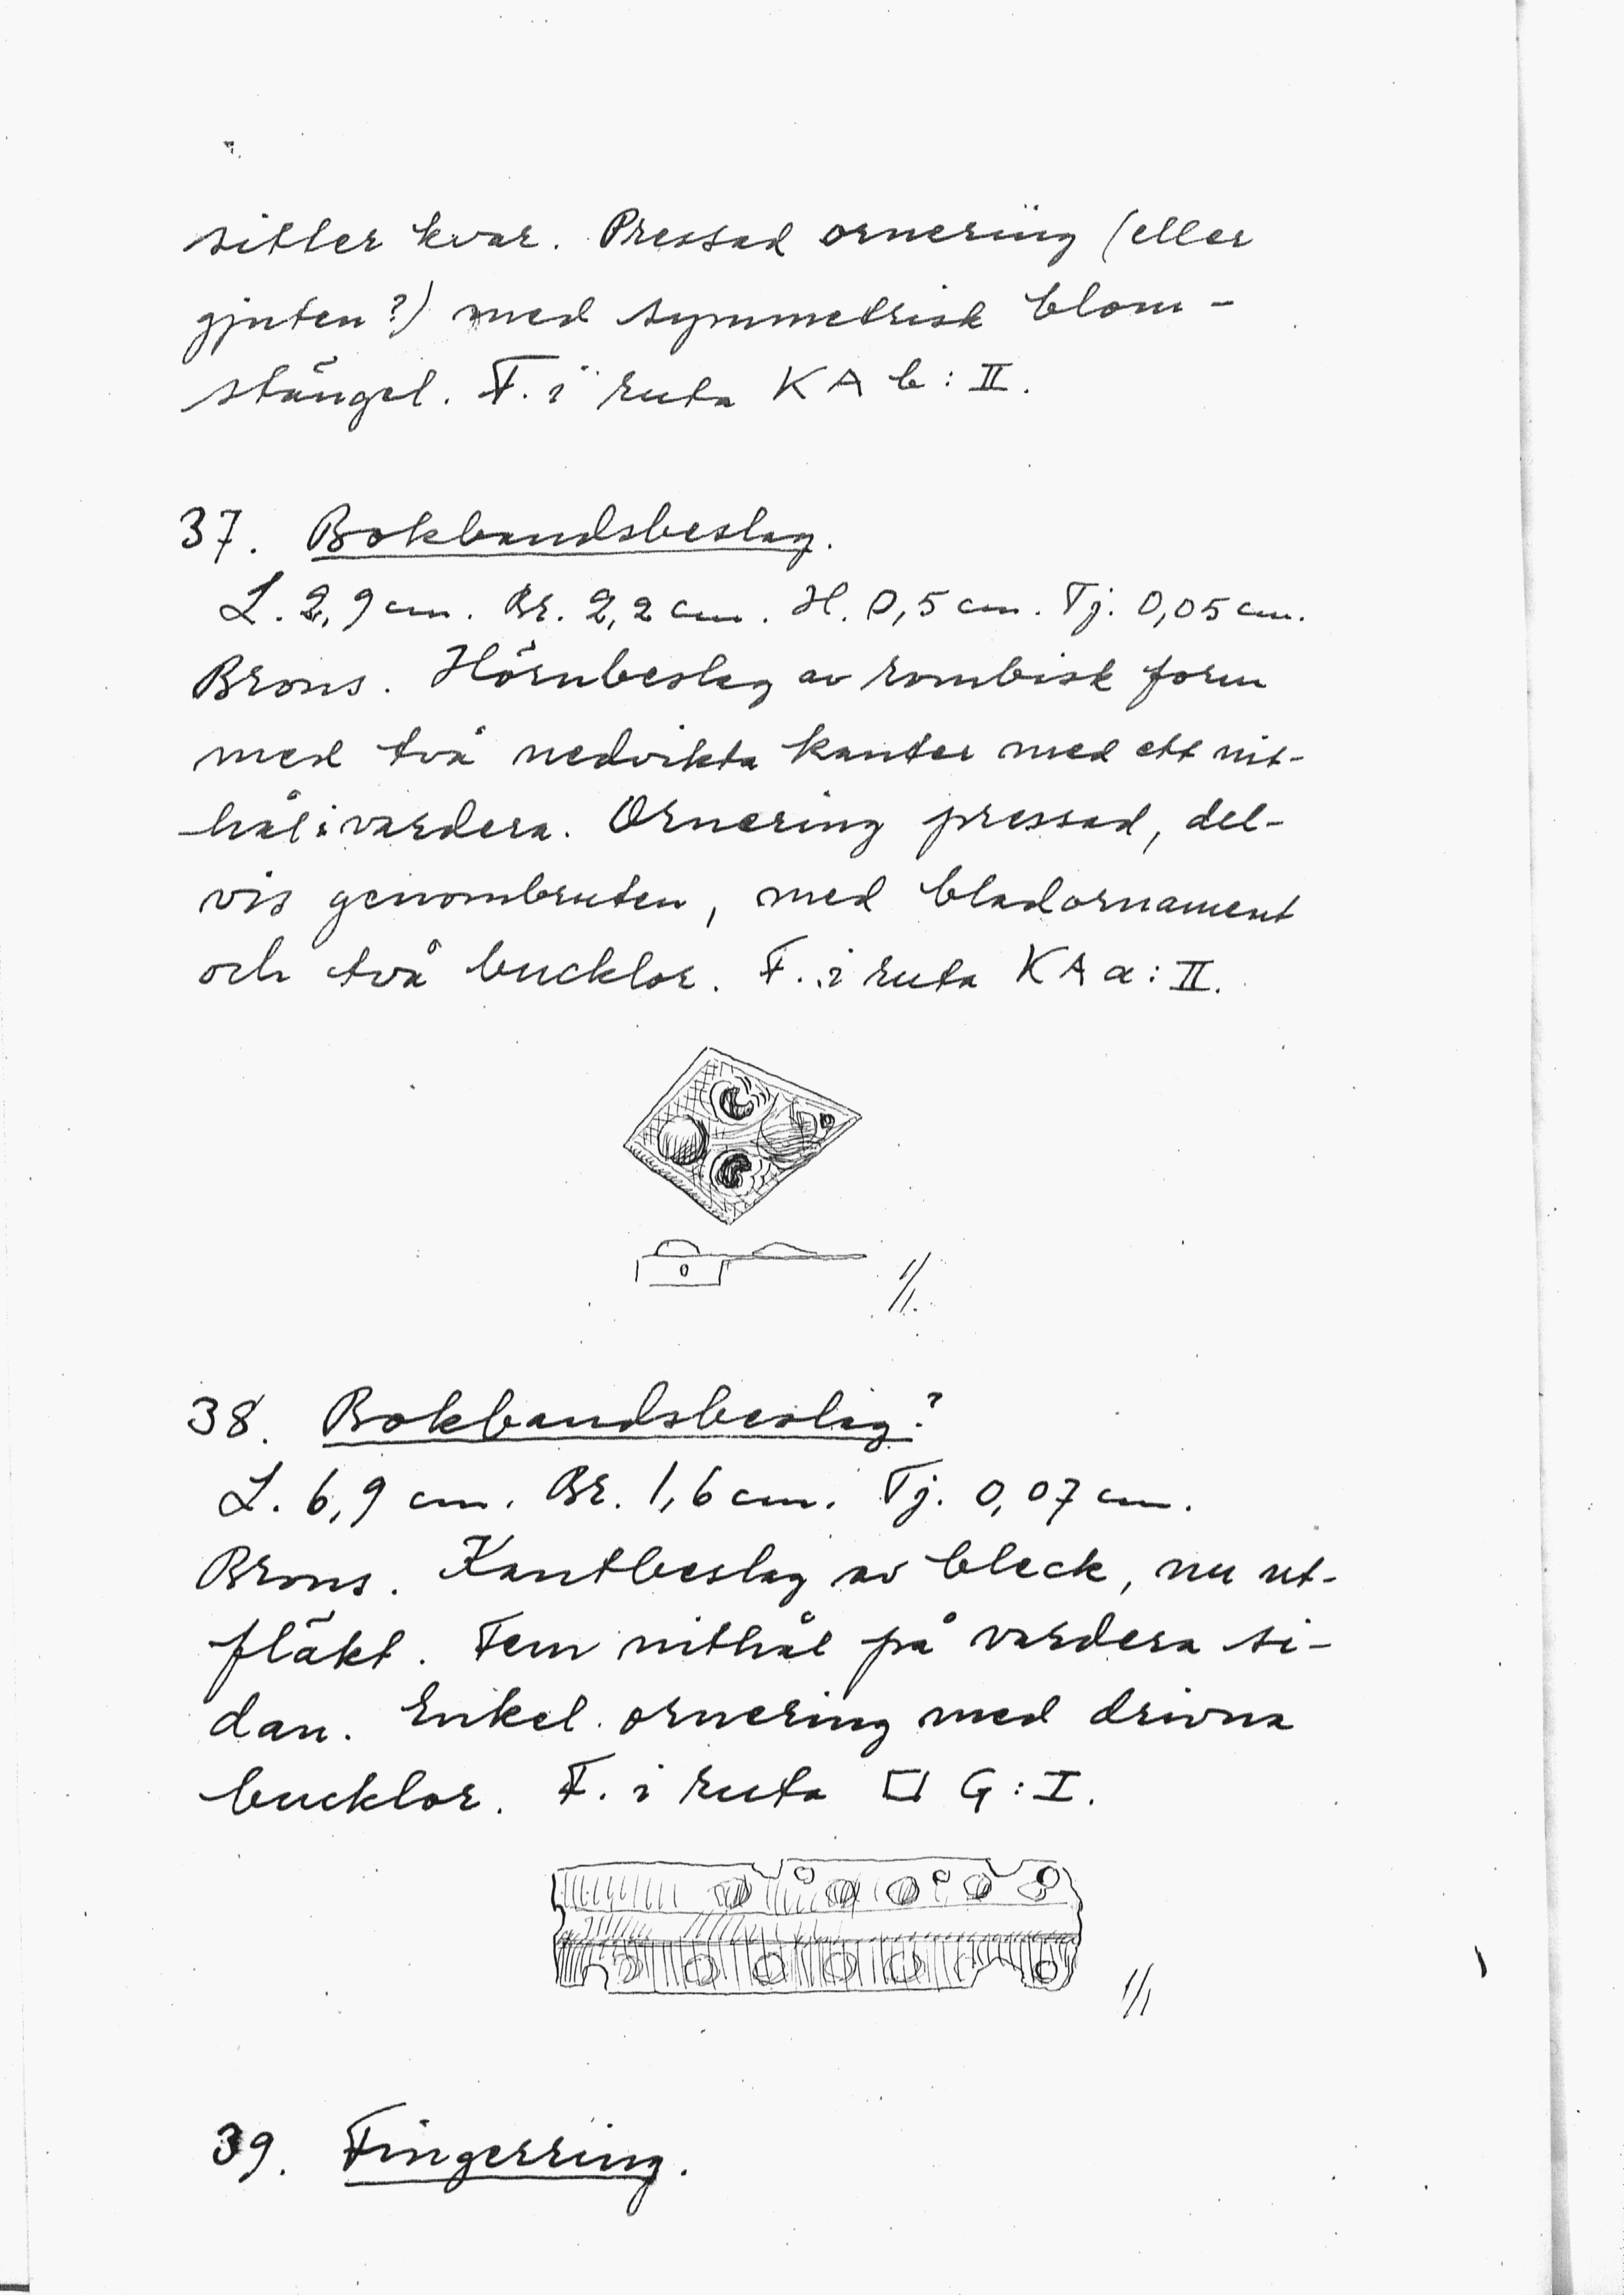 sitter kvar. Pressad ornering (eller
gjuten?) med symmetrisk blom-
stängel. F. i ruta KA b: II.
37. Bokbandsbeslag.
L. 2,9 cm. Br. 2,2 cm. H. 0,5 cm. Tj. 0,05 cm.
Brons. Hörnbeslag av rombisk form
med två nedvikta kanter med ett nit-
hål i vardera. Ornering pressad, del-
vis genombruten, med bladornament
och två bucklor. F. i ruta KA a: II.
1/1.
38. Bokbandsbeslag?
L. 6,9 cm. Br. 1,6 cm. Tj. 0,07 cm.
Brons. Kantbeslag av bleck, nu ut-
fläkt. Fem nithål på vardera si-
dan. Enkel ornering med drivna
bucklor. F. i ruta □ G: I.
1/1
39. Fingerring.